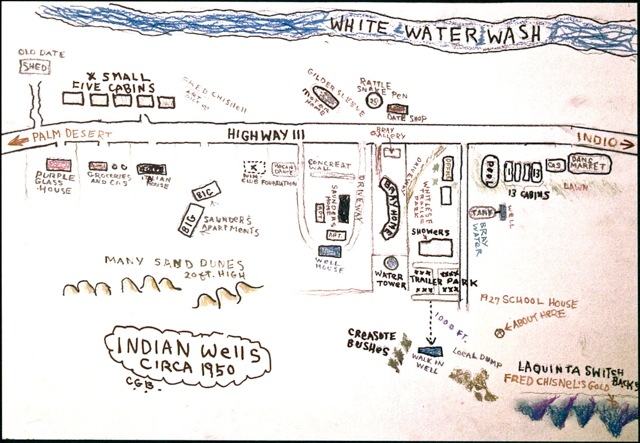 WHITE WATER WASH
OLD DATE
SHED
X SMALL
FIVE CABINS
FRED CHISHELL
GILDER SLEEVE
MOTOR
RATTLE
SNAKE PEN
DATE SHOP
PALM DESERT
HIGHWAY III
BRAY
GALLERY
INDIO
PURPLE
GLASS
HOUSE
GROCERIES
AND GAS
ITALIAN
HOUSE
FOUNDATION
CONCREAT
WALL
DRIVEWAY
DRIVEWAY
POOL
13 CABINS
GAS
DANS
MARKET
LAWN
BIG
BIG
SAUNDERS
APARTMENTS
SANDERS
APT.
APT.
WELL
HOUSE
BRAY HOME
WHITLESE
TRAILER
PARK
SHOWERS
TANK
WELL
BRAY
WATER
WATER
TOWER
TRAILER PARK
MANY SAND DUNES
20 FT. HIGH
1927 SCHOOL HOUSE
ABOUT HERE
1000 FT.
CREASOTE
BUSHES
WALK IN
WELL
LOCAL DUMP
INDIAN WellS
CIRCA 1950
C.G.B.
LAQUINTA SWITCH
BACKS
FRED CHISNEL'S GOLD